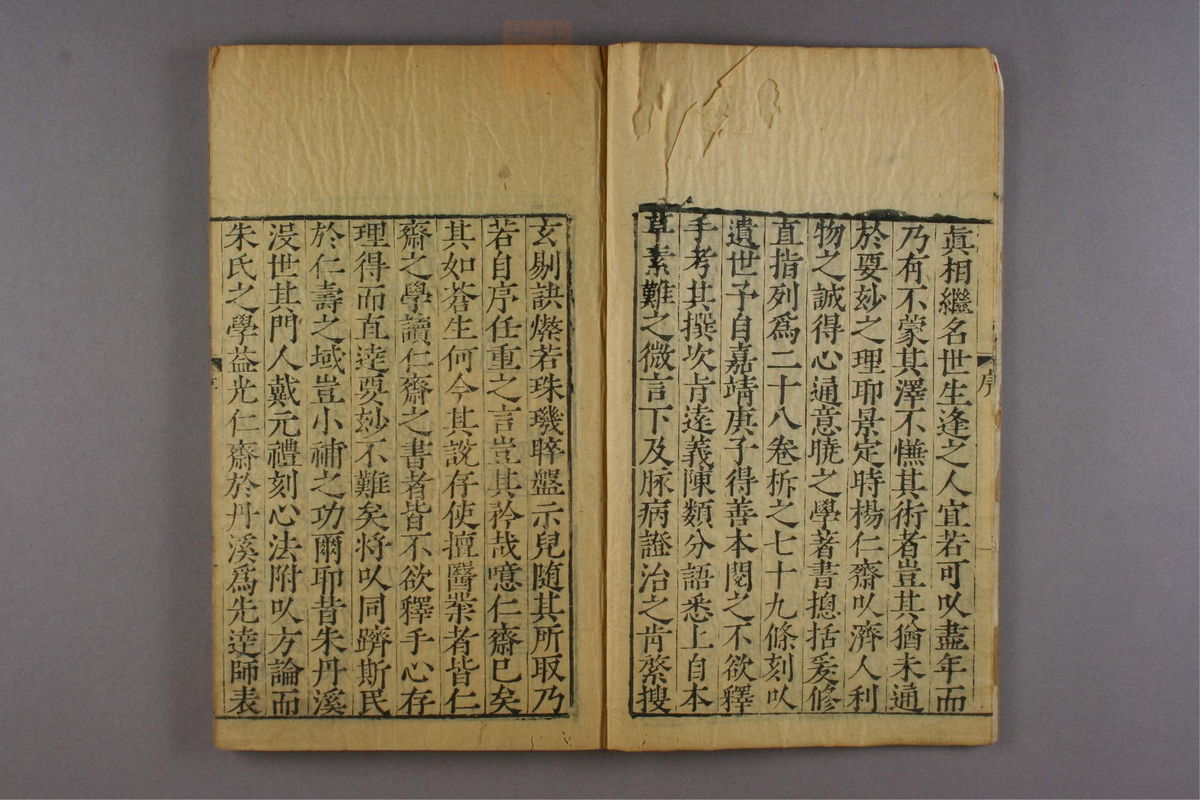 真相繼名世生逢之人宜若可㕥盡年而
乃有不蒙其澤不憮其術者豈其猶未通
於要玅之理耶景定時楊仁齋㕥濟人利
物之誠得心通意曉之學著書揔括爰修
直指列爲二十八卷析之七十九條刻㕥
遺世予自嘉靖庚子得善本閱之不欲釋
手考其撰次肯逵義陳類分語悉上自本
草素難之微言下及脉病證治之肯綮搜
序
玄剔訣燦若珠璣晬盤示兒随其所取乃
若自序任重之言豈其矜哉噫仁齋已矣
其如蒼生何今其說存使擅醫業者皆仁
齋之學讀仁齋之書者皆不欲釋手心存
理得而直逹要玅不難矣将㕥同躋斯民
於仁壽之域豈小補之功爾耶昔朱丹溪
沒世其門人戴元禮刻心法附㕥方論而
朱氏之學益光仁齋於丹溪爲先逹師表